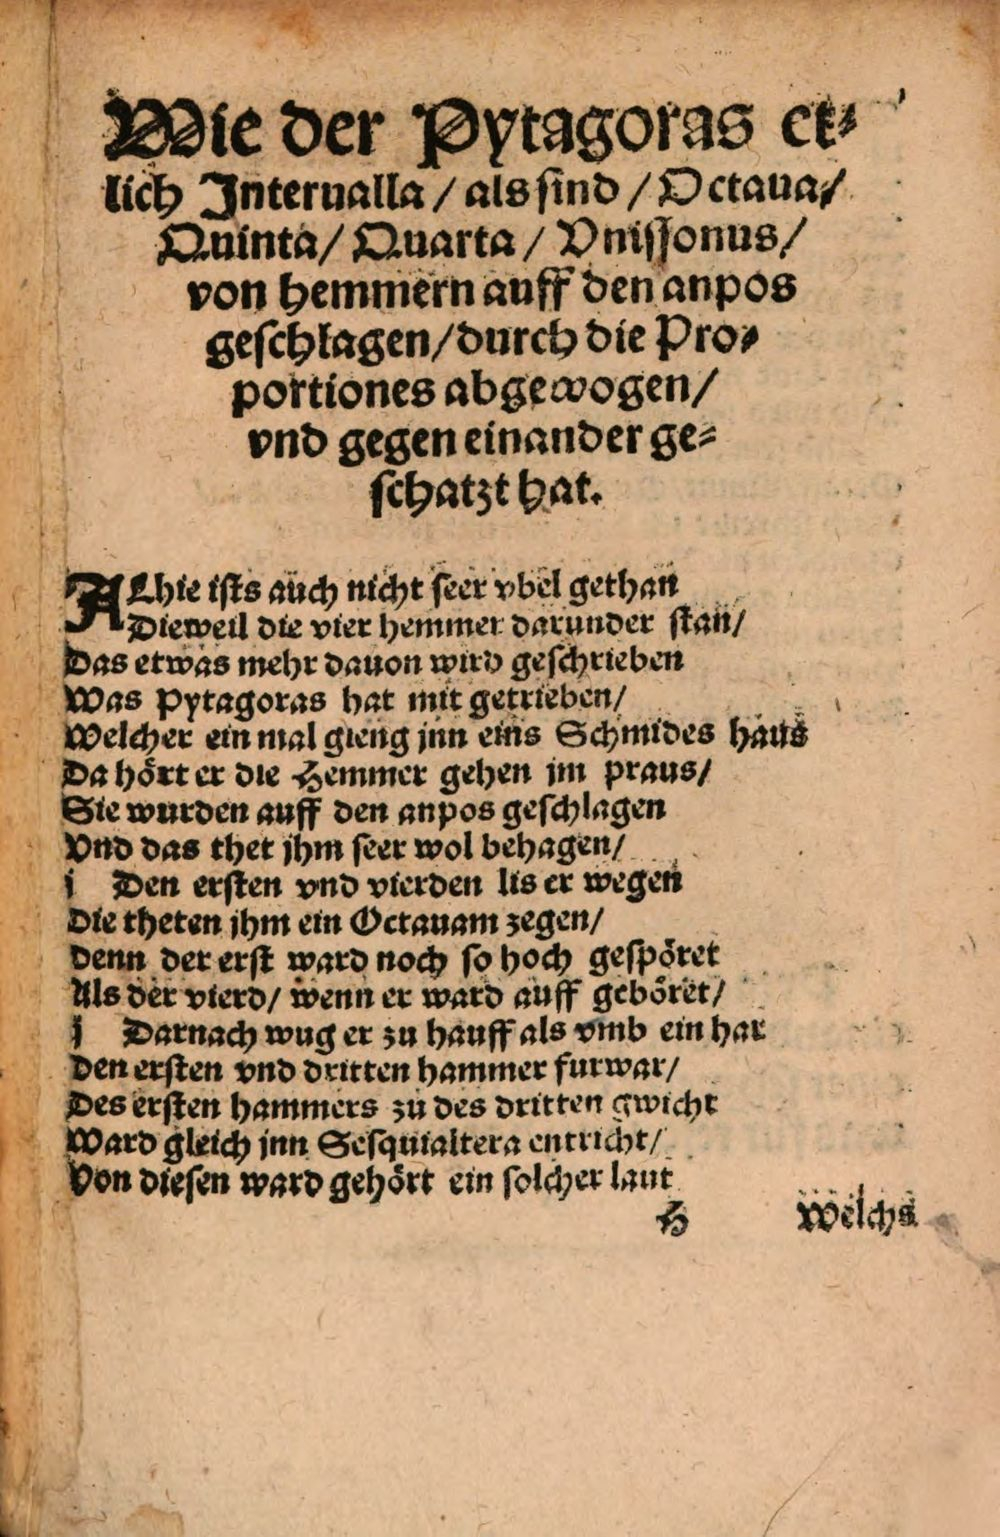 Wie der Pytagoras et⸗
lich Interualla / als sind / Octaua /
Quinta / Quarta / Vnissonus /
von hemmern auff den anpos
geschlagen / durch die Pro⸗
portiones abgewogen /
vnd gegen einander ge⸗
schatzt hat.
ALhie ists auch nicht seer vbel gethan
Dieweil die vier hemmer darunder stan /
Das etwas mehr dauon wird geschrieben
Was Pytagoras hat mit getrieben /
Welcher ein mal gieng jnn eins Schmides haus
Da hört er die Hemmer gehen im praus /
Sie wurden auff den anpos geschlagen
Vnd das thet jhm seer wol behagen /
j Den ersten vnd vierden lis er wegen
Die theten jhm ein Octauam zegen /
Denn der erst ward noch so hoch gespöret
Als der vierd / wenn er ward auff geböret /
j Darnach wug er zu hauff als vmb ein har
Den ersten vnd dritten hammer furwar /
Des ersten hammers zu des dritten gwicht
Ward gleich jnn Sesquialtera entricht /
Von diesen ward gehört ein solcher laut
H Welchs